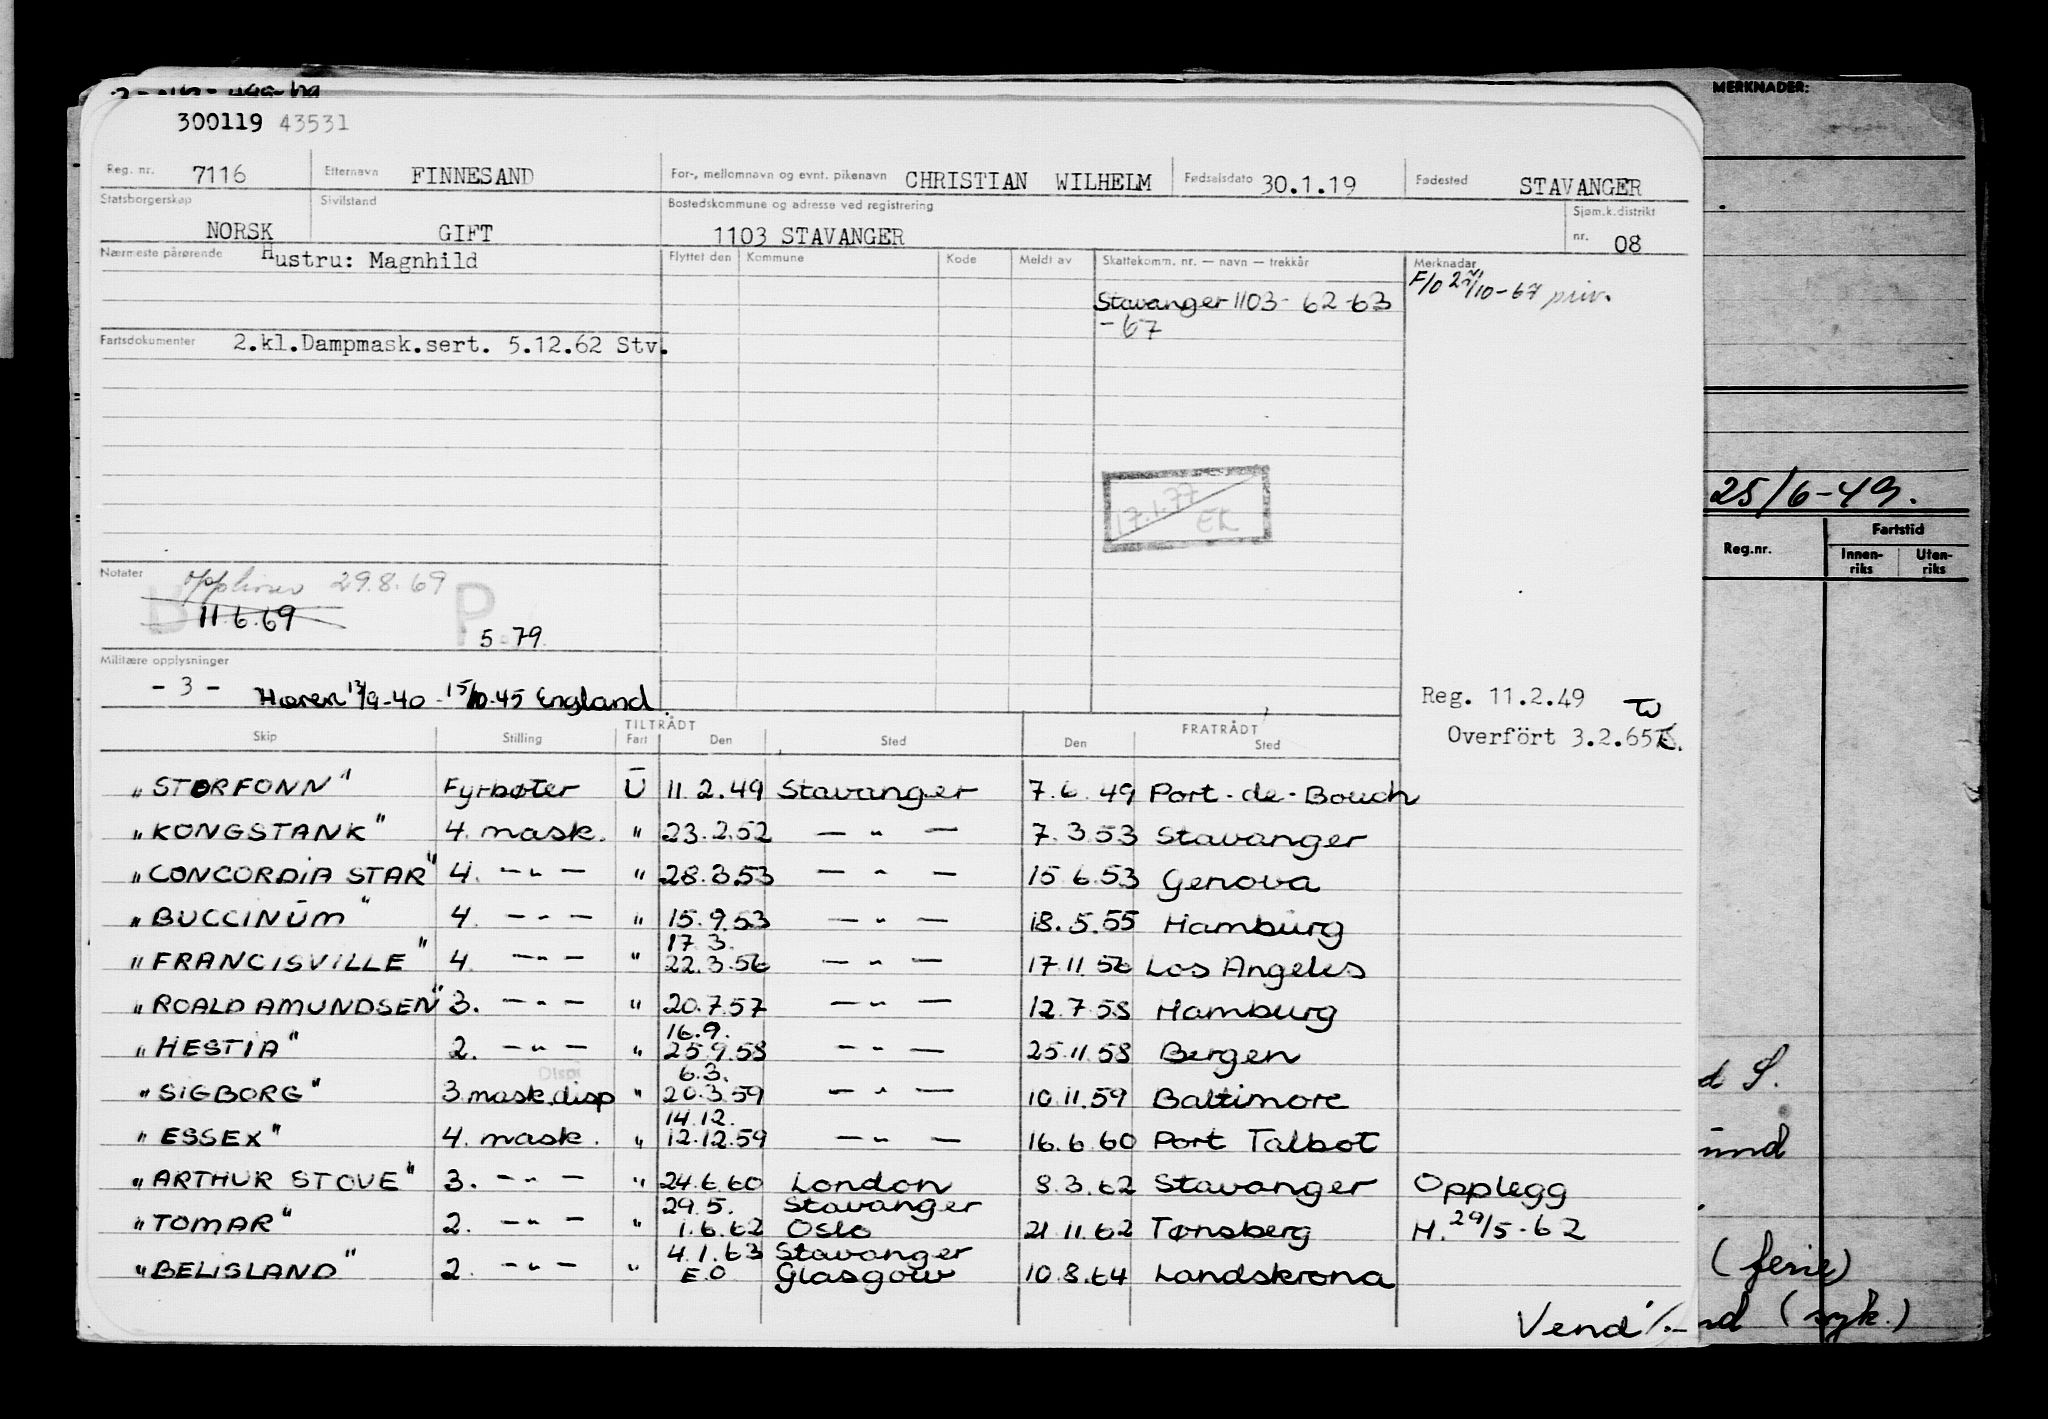 300119 43531
Reg. nr. 7116 Etternavn FINNESAND For-, mellomnavn og evnt. pikenavn CHRISTIAN WILHELM Fødselsdato 30.1.19 Fødested STAVANGER
Statsborgerskap NORSK Sivilstand GIFT Bostedskommune og adresse ved registrering 1103 STAVANGER Sjøm.k.distrikt nr. 08
Nærmeste pårørende Hustru: Magnhild Flyttet den Kommune Kode Meldt av Skattekomm. nr. — navn — trekkår Merknader
F/O 10-67 priv.
Stavanger 1103 - 62-63
-67
Fartsdokumenter 2.kl.Dampmask.sert. 5.12.62 Stv.
17.1.77
EK
Notater 29.8.69
11.6.69
P
5.79.
Militære opplysninger
- 3 - Hæren 12/9-40 - 15/10-45 England.
Reg. 11.2.49
Overfört 3.2.65
TILTRÅDT FRATRÅDT
Skip Stilling Fart Den Sted Den Sted
"STORFONN" Fyrbøter U 11.2.49 Stavanger 7.6.49 Port-de-Bouch
"KONGSTANK" 4. mask. " 23.2.52 — " — 7.3.53 Stavanger
"CONCORDIA STAR" 4. — " — " 28.3.53 — " — 15.6.53 Genova
"BUCCINUM" 4. — " — " 15.9.53 — " — 18.5.55 Hamburg
17.3.
"FRANCISVILLE" 4. — " — " 22.3.56 — " — 17.11.56 Los Angeles
"ROALD AMUNDSEN" 3. — " — " 20.7.57 — " — 12.7.58 Hamburg
16.9.
"HESTIA" 2. — " — " 25.9.58 — " — 25.11.58 Bergen
Disp 6.3.
"SIGBORG" 3 mask.disp " 20.3.59 — " — 10.11.59 Baltimore
14.12.
"ESSEX" 4. mask. " 12.12.59 — " — 16.6.60 Port Talbot
"ARTHUR STOVE" 3. — " — " 24.6.60 London 8.3.62 Stavanger Opplegg
29.5. Stavanger
"TOMAR" 2. — " — " 1.6.62 Oslo 21.11.62 Tønsberg H. 29/5-62
4.1.63 Stavanger
"BELISLAND" 2. — " — " E.O Glasgow 10.8.64 Landskrona
Vend
MERKNADER:
25/6-49.
Reg.nr. Fartstid
Innen-
riks
Uten-
riks
d S.
und
(ferie)
nd (syk.)